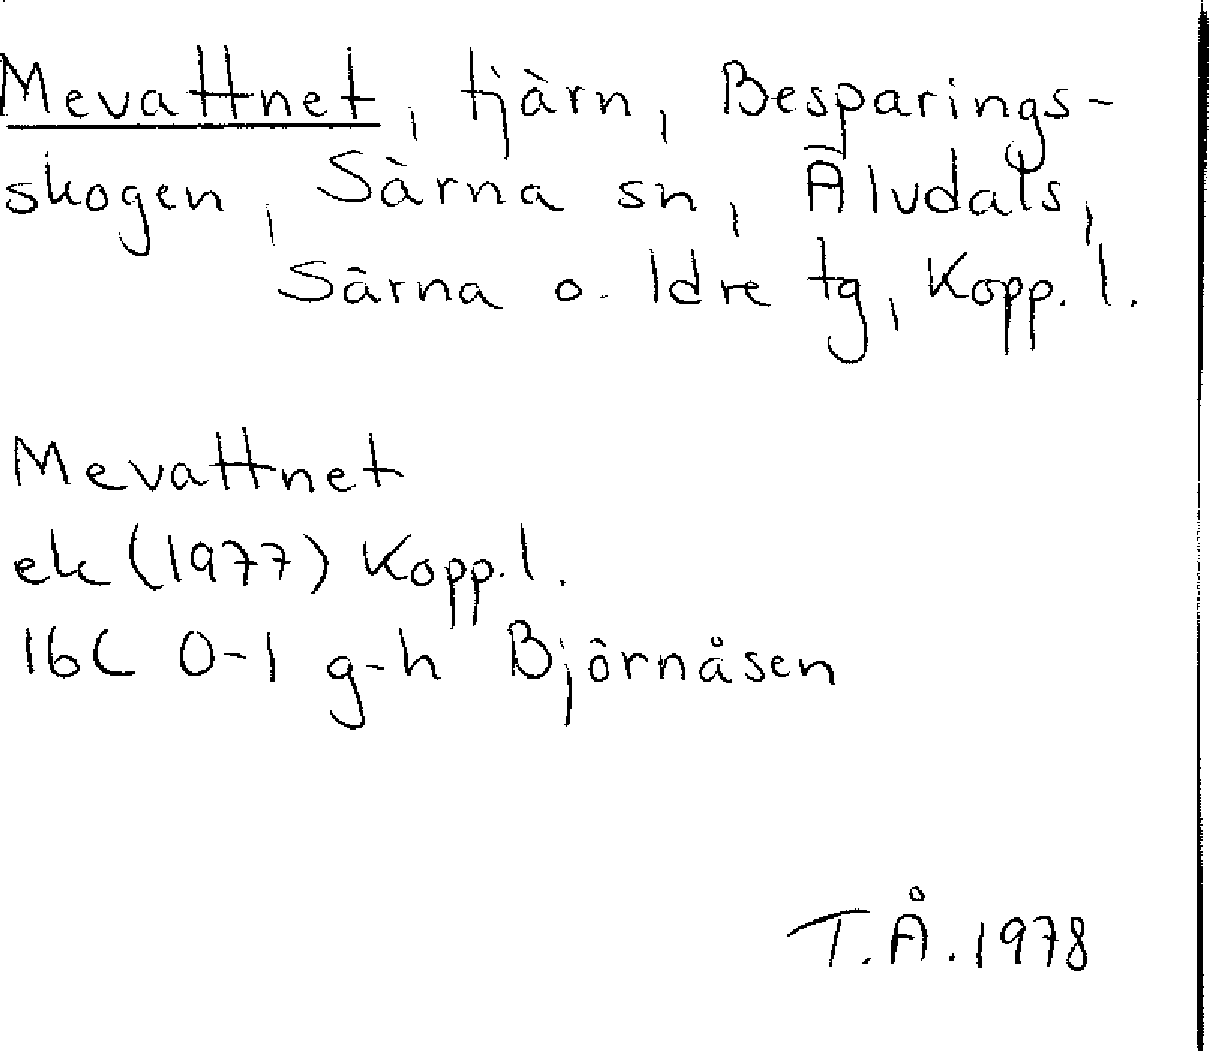 Mevattnet, tjärn, Besparings-
skogen, Särna sn, Älvdals,
Särna o. Idre tg, Kopp. l.
Mevattnet
ek (1977) Kopp. l.
16C 0-1 g-h Björnåsen
T.Å. 1978